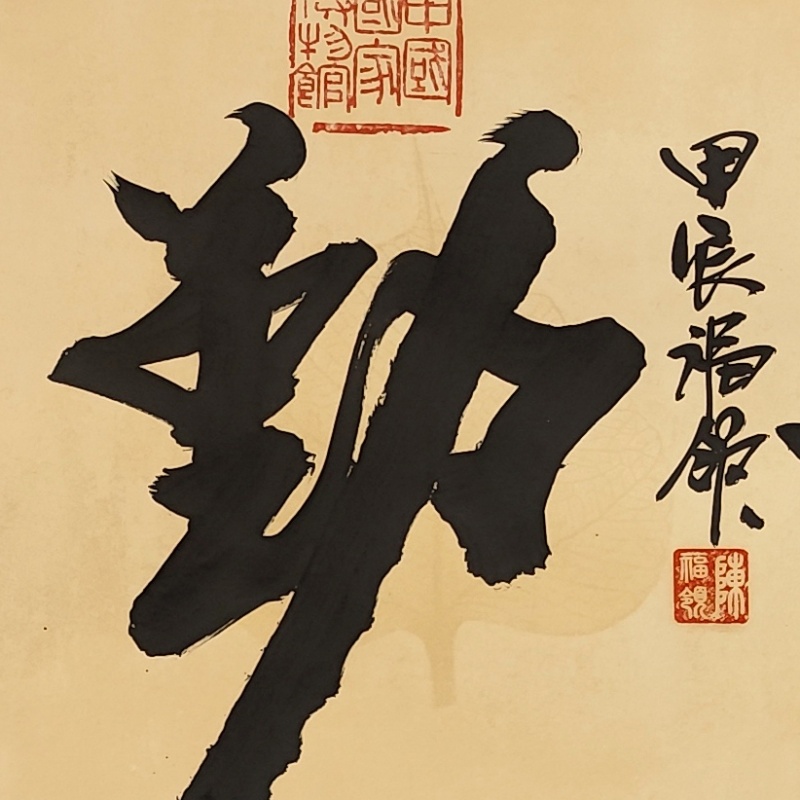 甲辰福領
陳
福領
勤
中國
國家
博物館